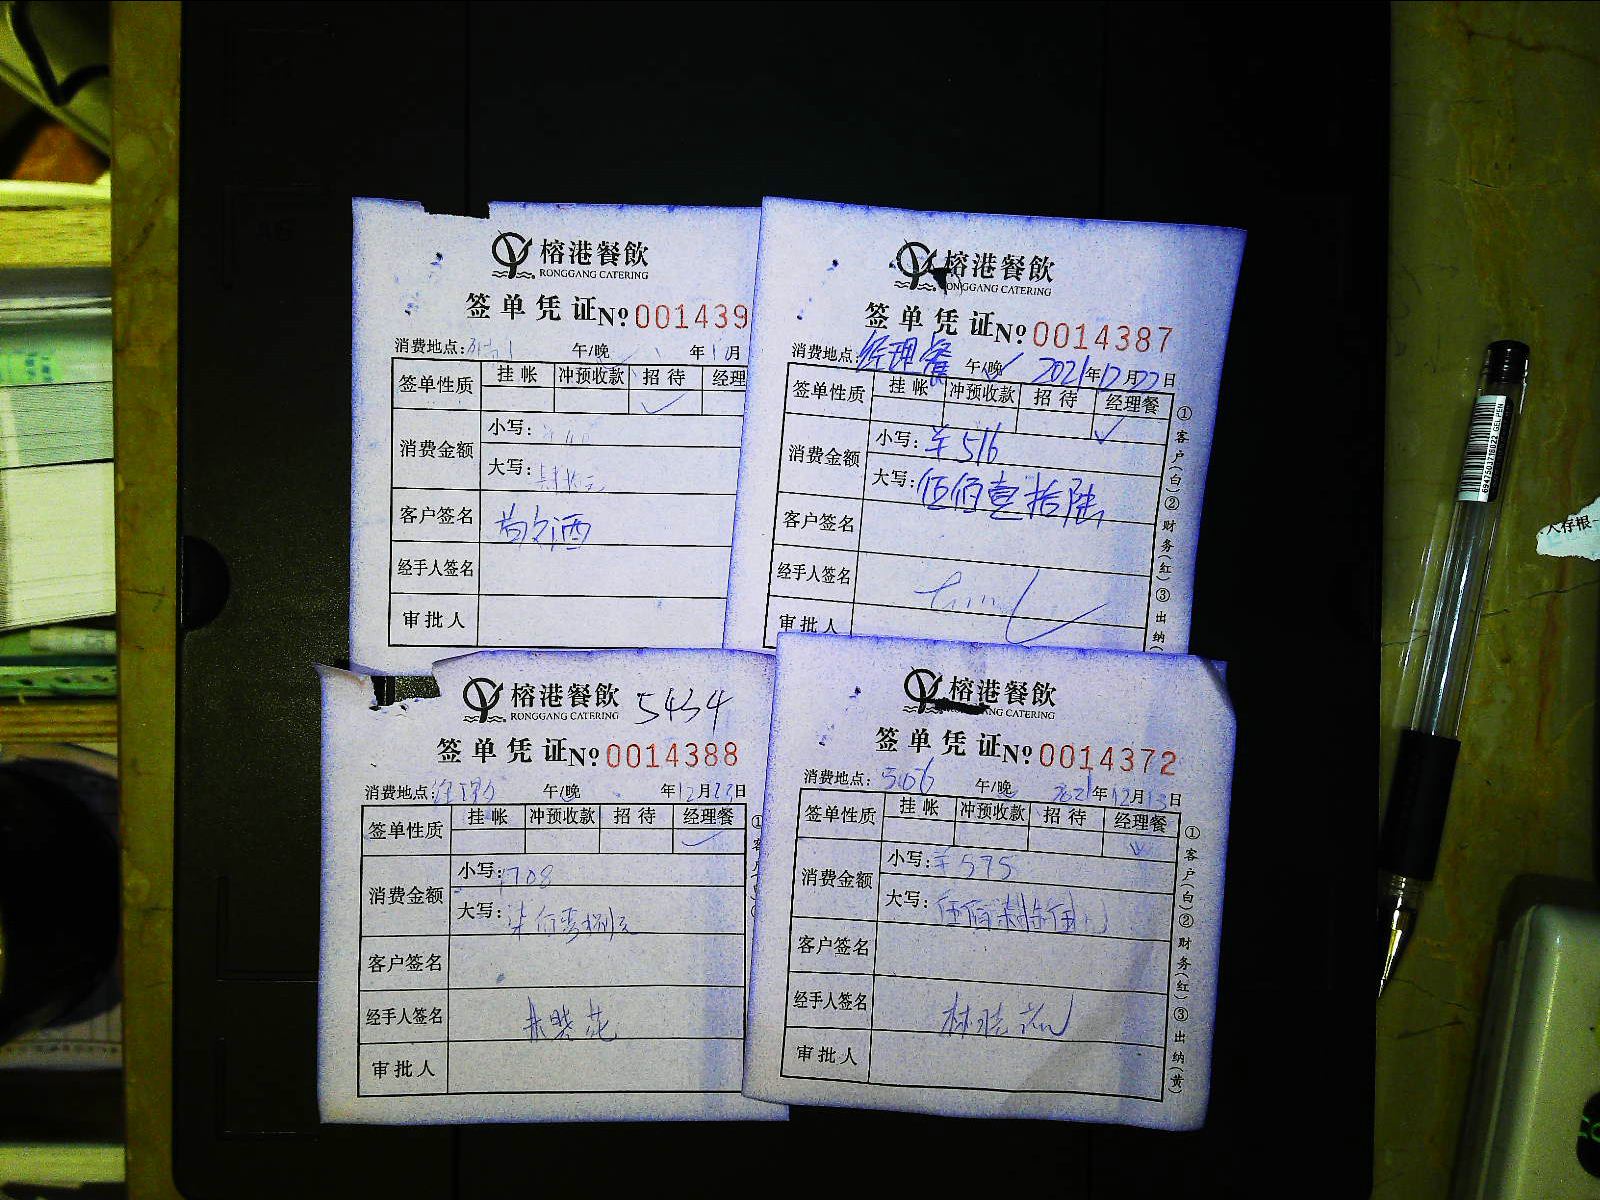 榕港餐飲
RONGGANG CATERING
签单凭证 № 001439
消费地点: 午/晚 年 月
签单性质 挂帐 冲预收款 招待 经理
✓
消费金额 小写:
大写:
客户签名
经手人签名
审批人
榕港餐飲
ONGGANG CATERING
签单凭证 № 0014387
消费地点: 经理餐 午/晚 2021年12月22日
签单性质 挂帐 冲预收款 招待 经理餐
✓
消费金额 小写: ¥516
大写: 伍佰壹拾陆
客户签名
经手人签名
审批人
①客户(白)②财务(红)③出纳(
榕港餐飲 5434
RONGGANG CATERING
签单凭证 № 0014388
消费地点: 午/晚 年12月23日
签单性质 挂帐 冲预收款 招待 经理餐
✓
消费金额 小写: 708
大写: 柒佰零捌元
客户签名
经手人签名
审批人
榕港餐飲
RONGGANG CATERING
签单凭证 № 0014372
消费地点: 午/晚 2021年12月13日
签单性质 挂帐 冲预收款 招待 经理餐
消费金额 小写: ¥575
大写: 伍佰柒拾伍
客户签名
经手人签名
审批人
①客户(白)②财务(红)③出纳(黄)
A6
6947503716022 GEL PEN
人存根